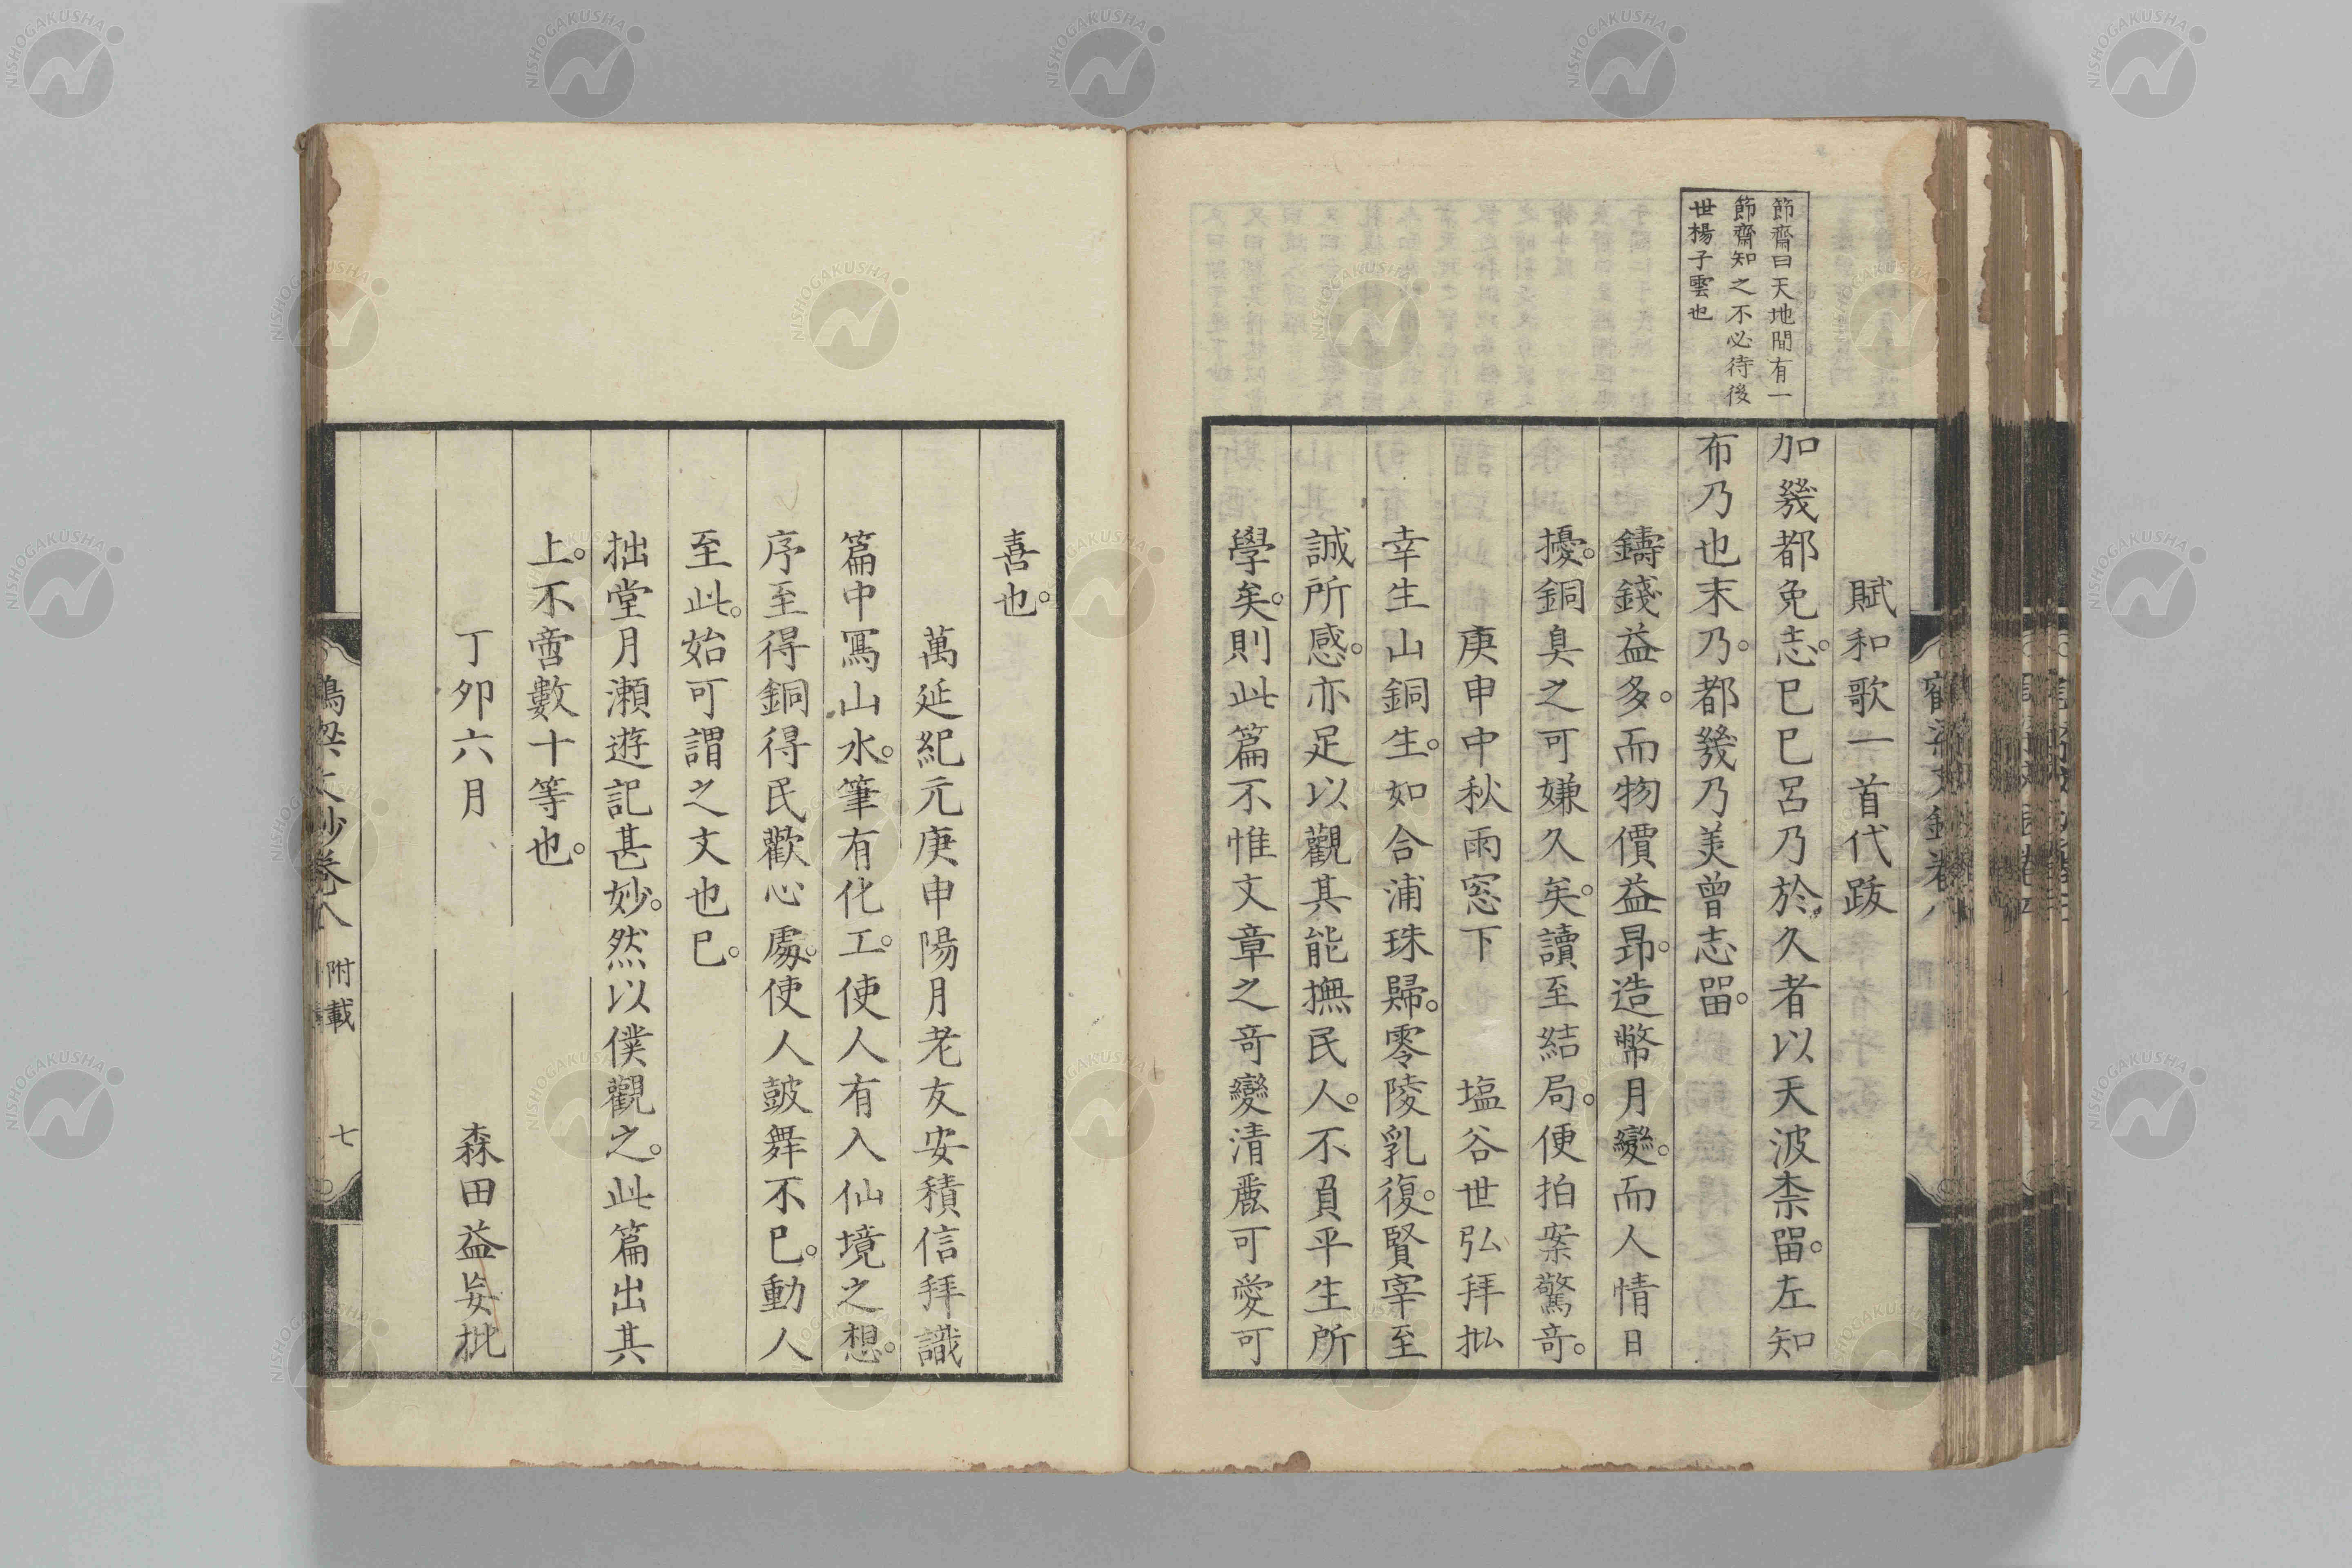 節齋曰天地間有一
節齋知之不必待後
世楊子雲也
賦和歌一首代跋
加幾都免志。巳巳呂乃於久者以天波柰畱。左知
布乃也末乃。都幾乃美曾志畱。
鑄錢益多。而物價益昂。造幣月變。而人情日
擾。銅臭之可嫌久矣。讀至結局。便拍案驚奇。
庚申中秋雨窓下　塩谷世弘拜批
幸生山銅生。如合浦珠歸。零陵乳復。賢宰至
誠所感。亦足以觀其能撫民人。不負平生所
學矣。則此篇不惟文章之奇變清麗可愛可
喜也。
萬延紀元庚申陽月老友安積信拜識
篇中寫山水。筆有化工。使人有入仙境之想。
序至得銅得民歡心處。使人鼓舞不已。動人
至此。始可謂之文也已。
拙堂月瀨遊記甚妙。然以僕觀之。此篇出其
上。不啻數十等也。
丁卯六月　森田益妄批
鶴梁文鈔卷八　附載　七
NISHOGAKUSHA